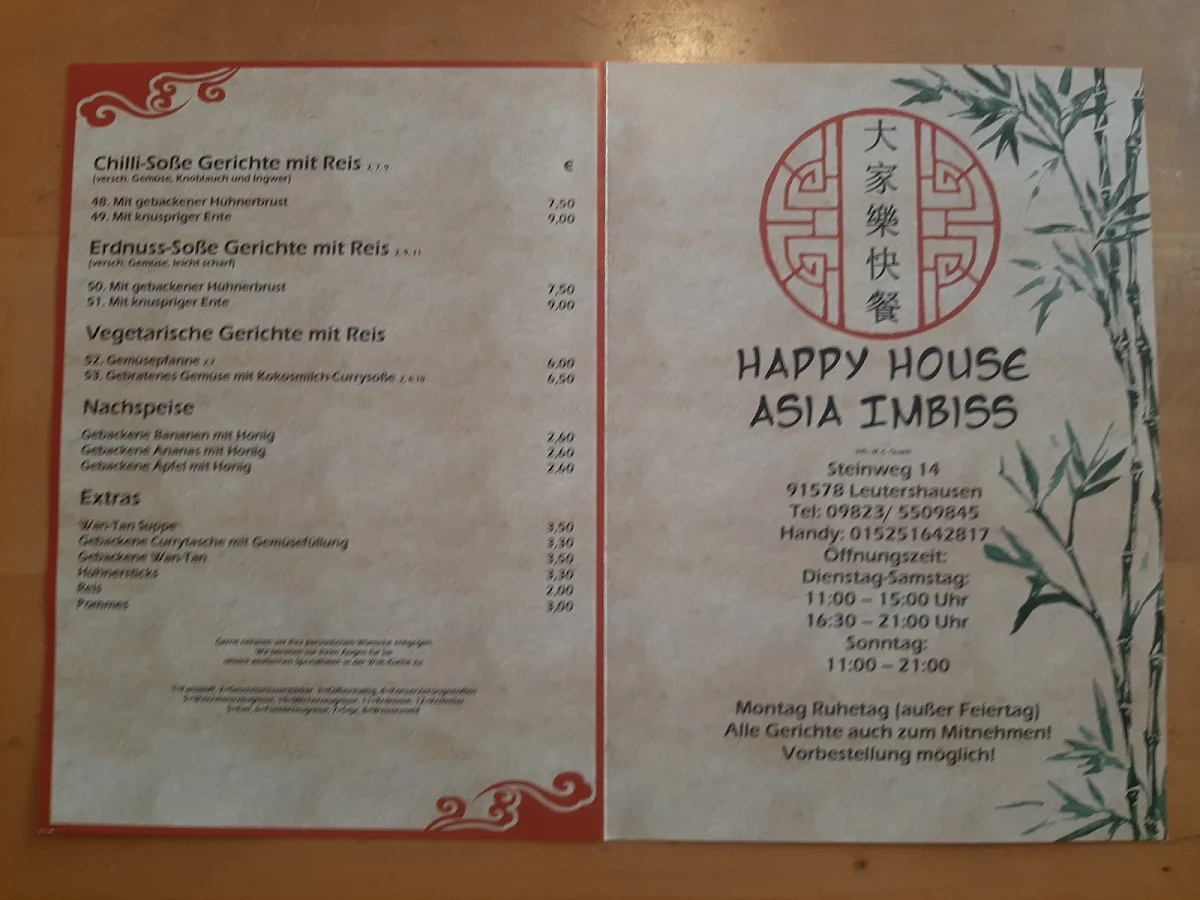 Chilli-Soße Gerichte mit Reis 2, 7, 9 €
(versch. Gemüse, Knoblauch und Ingwer)
48. Mit gebackener Hühnerbrust 7,50
49. Mit knuspriger Ente 9,00
Erdnuss-Soße Gerichte mit Reis 2, 9, 11
(versch. Gemüse, leicht scharf)
50. Mit gebackener Hühnerbrust 7,50
51. Mit knuspriger Ente 9,00
Vegetarische Gerichte mit Reis
52. Gemüsepfanne 2,7 6,00
53. Gebratenes Gemüse mit Kokosmilch-Currysoße 6,50
Nachspeise
Gebackene Bananen mit Honig 2,60
Gebackene Ananas mit Honig 2,60
Gebackene Äpfel mit Honig 2,60
Extras
Wan-Tan Suppe 3,50
Gebackene Currytasche mit Gemüsefüllung 3,30
Gebackene Wan-Tan 3,50
Hühnersticks 3,30
Reis 2,00
Pommes 3,00
大家樂快餐
HAPPY HOUSE
ASIA IMBISS
Steinweg 14
91578 Leutershausen
Tel: 09823/ 5509845
Handy: 015251642817
Öffnungszeit:
Dienstag-Samstag:
11:00 – 15:00 Uhr
16:30 – 21:00 Uhr
Sonntag:
11:00 – 21:00
Montag Ruhetag (außer Feiertag)
Alle Gerichte auch zum Mitnehmen!
Vorbestellung möglich!